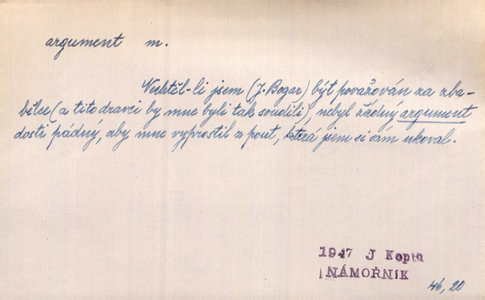 argument m.
Nechtěl-li jsem (J. Bogar) být považován za zba-
bělce (a tito dravci by mne byli tak soudili), nebyl žádný argument
dosti pádný, aby mne vyprostil z pout, která jsem si sám ukoval.
1947 J Kopta
NÁMOŘNÍK
46, 20